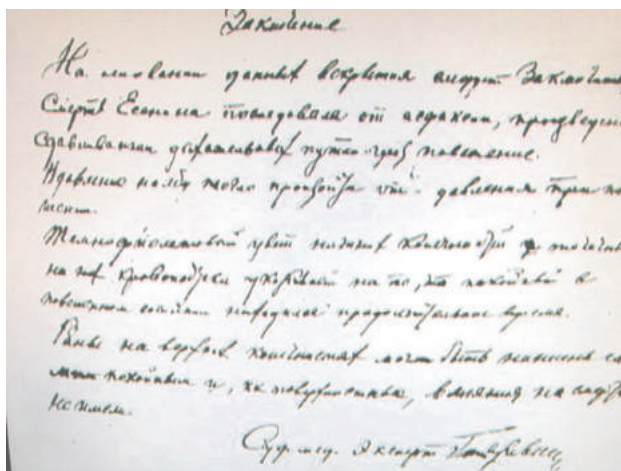 Заключение
На основании данных вскрытия следует заключить,
Смерть Есенина последовала от асфиксии, произведен
сдавливанием дыхательных путей через повешение.
Вдавление на лбу могло произойти от давления при по
шении.
Темнофиолетовый цвет нижних конечностей, точечные
на них кровоподтеки указывают на то, что покойный в
повешенном состоянии находился продолжительное время.
Раны на верхних конечностях могли быть нанесены са
мим покойным и, как поверхностные, влияния на смерть
не имели.
Суд. мед. эксперт Гиляревский